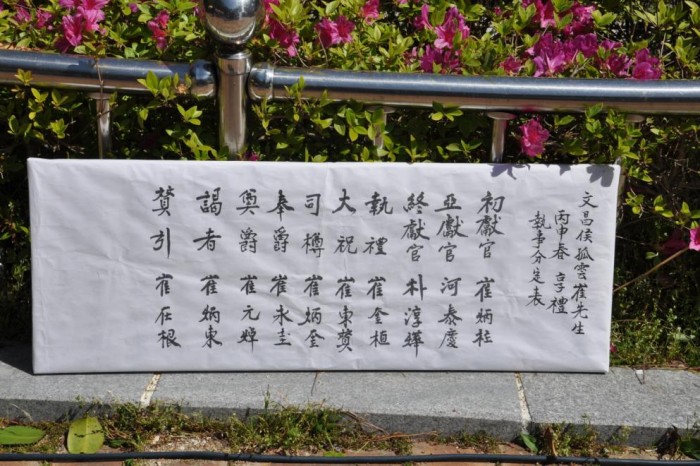 文昌侯孤雲崔先生
丙申春享禮
執事分定表
初獻官 崔炳柱
亞獻官 河泰慶
終獻官 朴淳嬅
執禮 崔奎桓
大祝 崔東贊
司樽 崔炳奎
奉爵 崔永圭
奠爵 崔元
謁者 崔炳東
贊引 崔在根